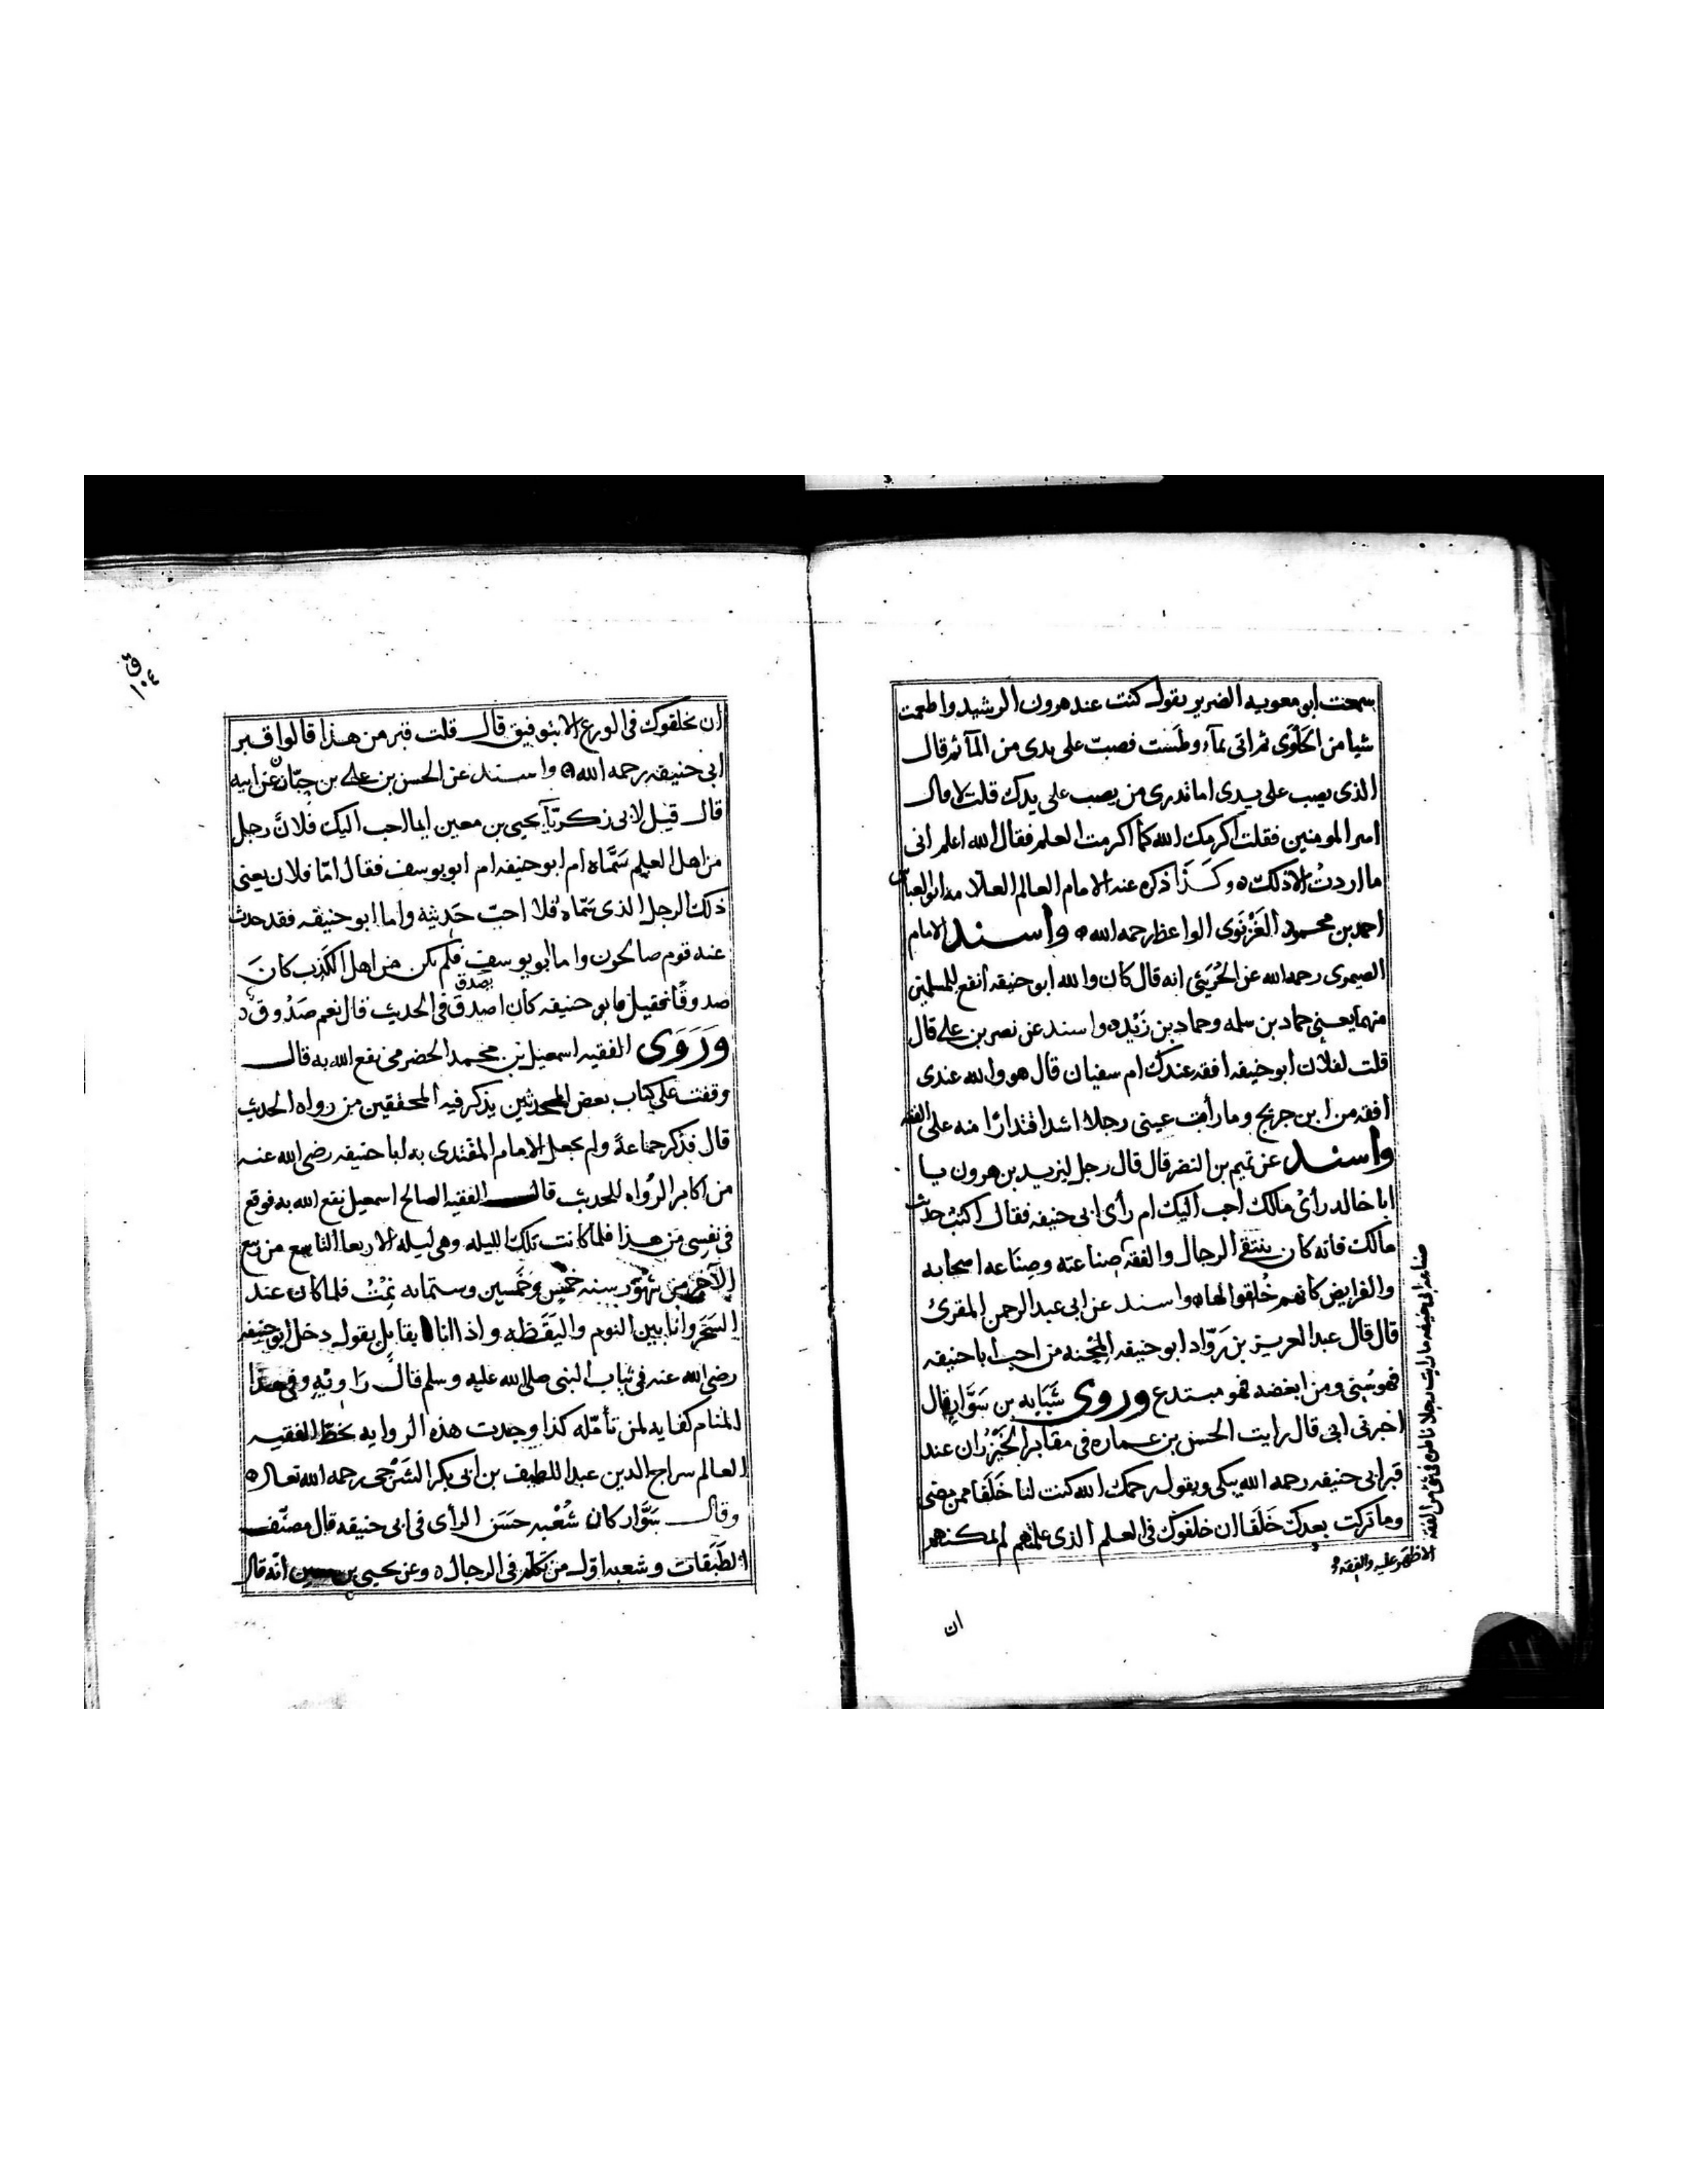 سمعت ابو معويه الضرير يقول كنت عند هرون الرشيد واطعمت
شيا من الحَلْوَى ثم اتى بمآء وطَست فصبّ على يدى من المآ ثم قال
الذى يصب على يدى اما تدرى من يصب على يدك قلت لا قال
امير المومنين فقلت اكرمك الله كما اكرمت العلم فقال الله اعلم انى
ما اردتُ الا ذلك ه وكَذَا ذكره عنه الامام العالم العلامه ابو العباس
احمد بن محمود الغَزْنَوى الواعظ رحمه الله ه واسند الامام
الصيمرى رحمه الله عن الحُرَيْثى انه قال كان والله ابو حنيفه انفع للمسلمين
منهما يعنى حماد بن سلمه وحماد بن زَيْد ه واسند عن نصر بن على قال
قلت لفلان ابو حنيفه افقه عندك ام سفيان قال هو والله عندى
افقه من ابن جريج وما رأت عينى رجلا اشد اقتدارًا منه على الفقه
واسند عن تميم بن النضر قال قال رجل ليزيد بن هرون يا
ابا خالد رأىُ مالك احب اليك ام رأى ابى حنيفه فقال اكتب حديث
مالك فانه كان ينتقى الرجال والفقه صناعته وصِنَاعه اصحابه
والفرايض كانهم خُلقوا لها ه واسند عن ابى عبد الرحمن المقرئ
قال قال عبد العزيز بن رَوّاد ابو حنيفه المِحْنه من احب ابا حنيفه
فهو سُنى ومن ابغضه فهو مبتدع وروى شَبَابه بن سَوَّار قال
اخبرنى ابى قال رايت الحسن بن عماره فى مقابر الخَيْزُران عند
قبر ابى حنيفه رحمه الله يبكى ويقول رحمك الله كنت لنا خَلَفا ممن مضى
وما تركت بعدك خَلَفا ان خلفوك فى العلم الذى علمتهم لم يمكنهم
صناعه ابى حنيفه ما رايت رجلا ناظره فى شى من الفقه
الا ظهر عليه والفقه
ان
ق
١٠٤
ان يخلفوك فى الورع الا بتوفيق قال قلت قبر من هذا قالوا قبر
ابى حنيفه رحمه الله ه واسند عن الحسن بن على بن حِبّان عن ابيه
قال قيل لابى زكريآ يحيى بن معين ايما احب اليك فلانٌ رجل
من اهل العلم سَمَّاه ام ابو حنيفه ام ابو يوسف فقال امّا فلان يعنى
ذلك الرجل الذى سَمّاه فلا احبّ حَديثه واما ابو حنيفه فقد حدث
عنه قوم صالحون واما ابو يوسف فلم يكن من اهل الكَذب كانَ
صدوقًا فقيل فابو حنيفه كان اصدق فى الحديث قال نعم صَدُوق ه
يصدق
وَرَوَى الفقيه اسمعيل بن محمد الحضرمى نفع الله به قال
وقفت على كتاب بعض المحدثين يذكر فيه المحققين من رواه الحديث
قال فذكر جماعةً ولم يجعل الامام المقتدى به ابا حنيفه رضى الله عنه
من اكابر الرُواه للحديث قال الفقيه الصالح اسمعيل نفع الله به فوقع
فى نفسِى من هذا فلما كانت تلك الليله وهى ليله الاربعا التاسع من ربيع
الآخر من شهور سنه خمس وخَمسين وستمايه نِمْتُ فلما كان عند
السَحَر وانا بين النوم واليَقَظه واذا انا بقايل يقول دخل ابو حنيفه
رضى الله عنه فى ثياب النبى صلى الله عليه وسلم قال رَاويْه وفى هذا
المنام كفايه لمن تأمّله كذا وجدت هذه الروايه بخطّ الفقيه
العالم سراج الدين عبد اللطيف بن ابى بكر الشَرْجى رحمه الله تعالى ه
وقال سَوَّار كان شُعْبه حَسَن الرأى فى ابى حنيفه قال مصنّف
الطَبَقات وشعبه اوّل من تكلّم فى الرجال ه وعن يحيى بن معين انّه قال